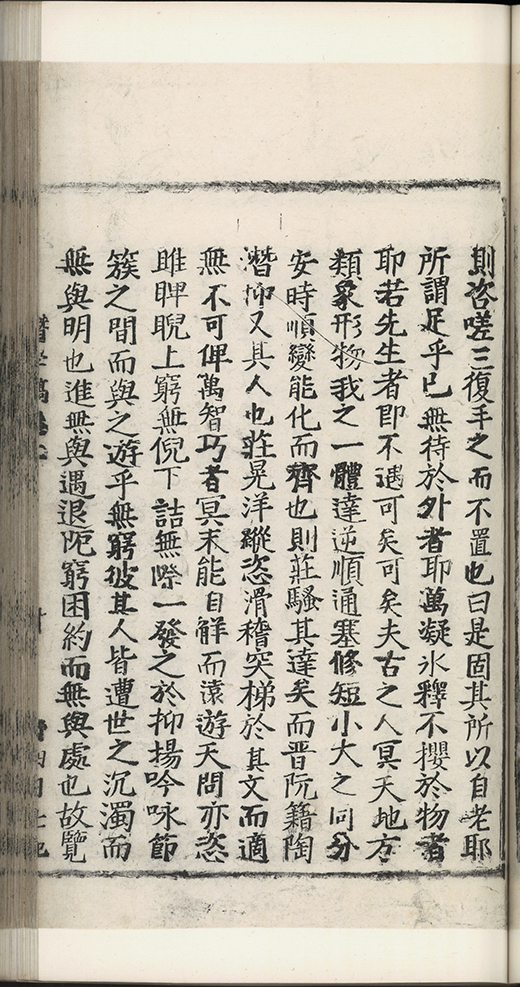 則咨嗟三復手之而不置也曰是固其所以自老耶
所謂足乎已無待於外者耶萬凝氷釋不攖於物者
耶若先生者即不遇可矣可矣夫古之人冥天地方
類象形物我之一體達逆順通塞修短小大之同分
安時順變能化而齊也則莊騷其達矣而晋阮籍陶
潛抑又其人也莊晃洋蹤恣滑稽突梯於其文而適
無不可俾萬智巧者冥末能自解而遠遊天問亦恣
睢睥睨上窮無倪下詰無際一發之於抑揚吟咏節
簇之間而與之遊乎無窮彼其人皆遭世之沉濁而
無與明也進無與遇退阨窮困約而無與處也故覽